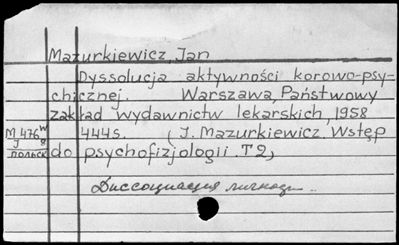 Mazurkiewicz, Jan
Dyssolucja aktywności korowo-psy-
chicznej. Warszawa, Państwowy
zakład wydawnictw lekarskich, 1958
M 476 444s. (J. Mazurkiewicz. Wstęp
польск do psychofizjologii. T 2)
Диссоциация